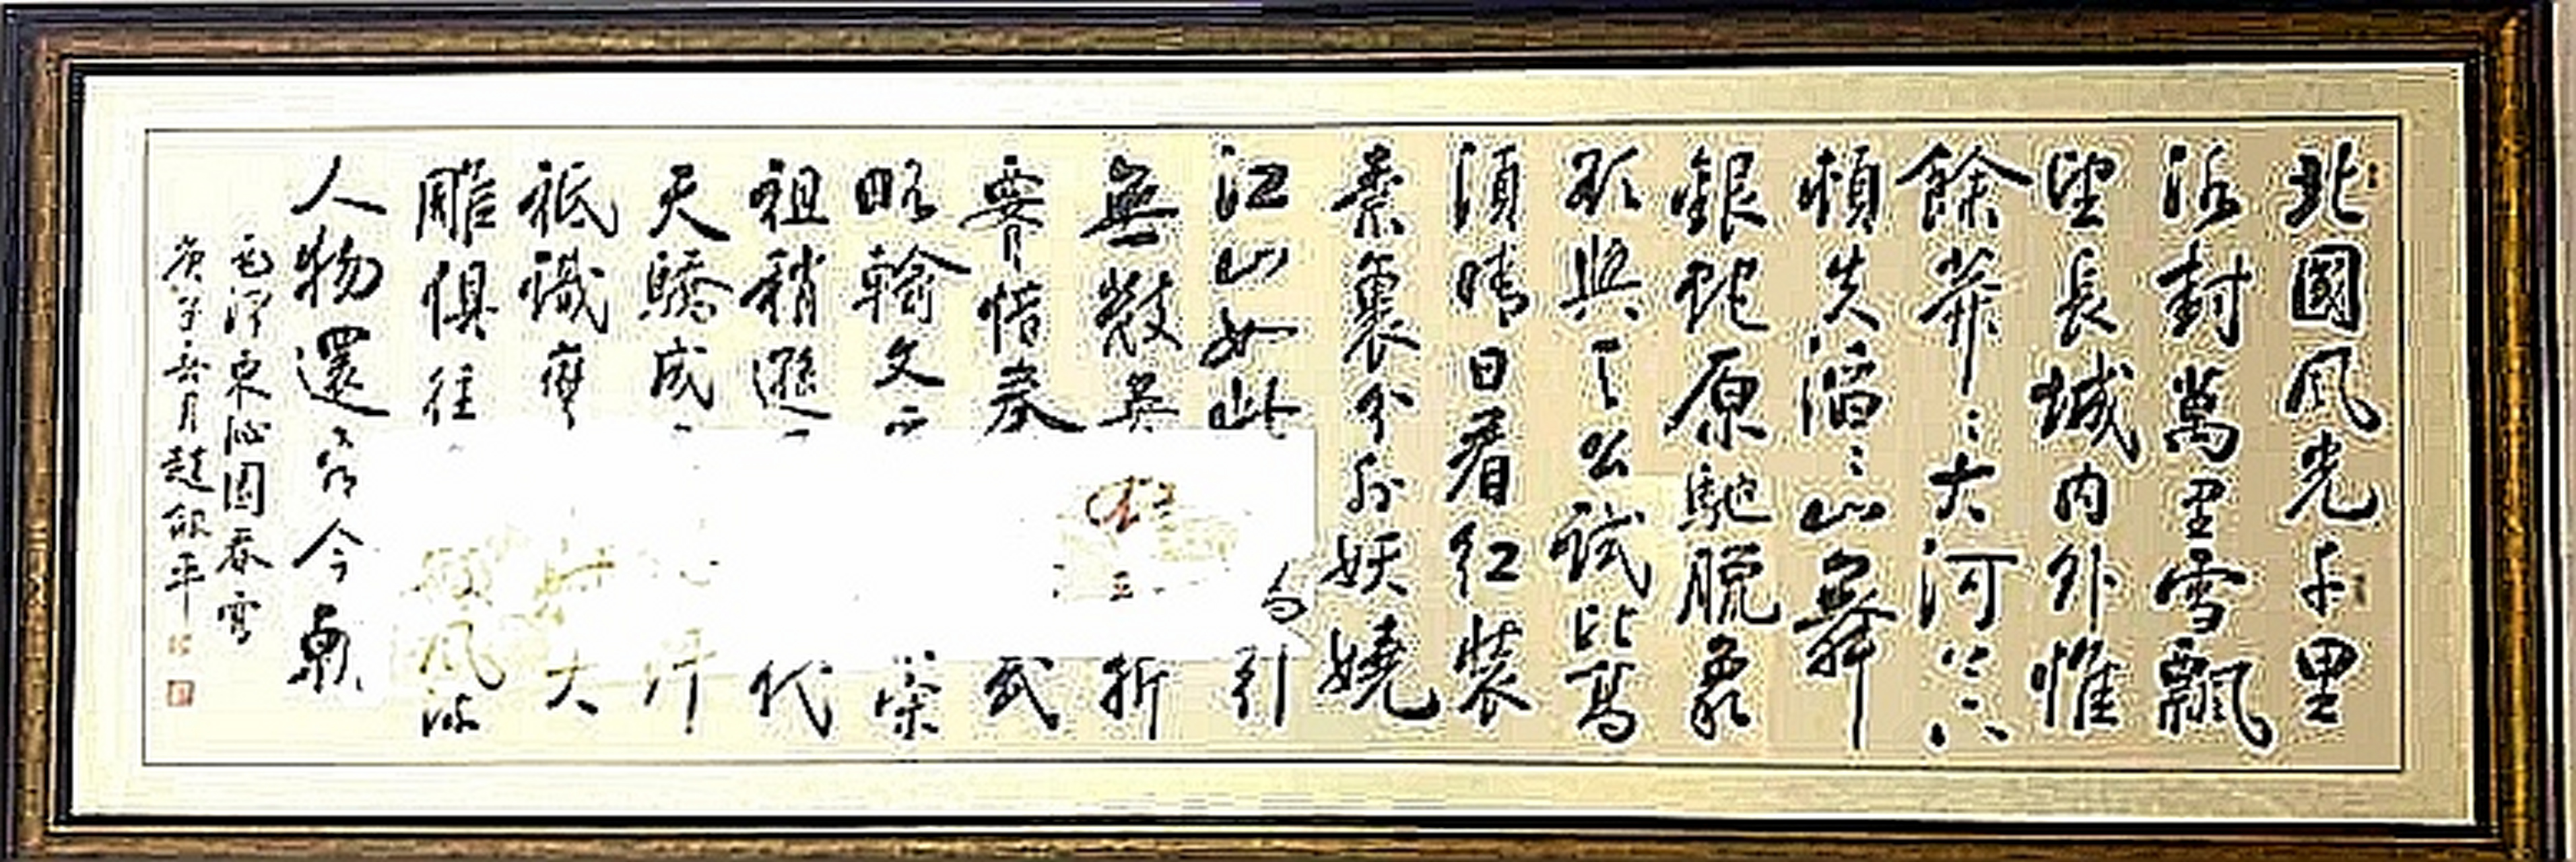 北國風光千里
冰封萬里雪飄
望長城內外惟
餘莽〻大河上下
頓失滔〻山舞
銀蛇原馳脫象
欲與天公試比高
須晴日看紅裝
素裹分外妖嬈
江山如此 引
無數英 折
腰惜秦 武
略輸文 宋
祖稍遜 代
天驕成
祇識彎 大
雕俱往 風流
人物還看今朝
毛澤東沁園春雪
庚子 月趙銀平